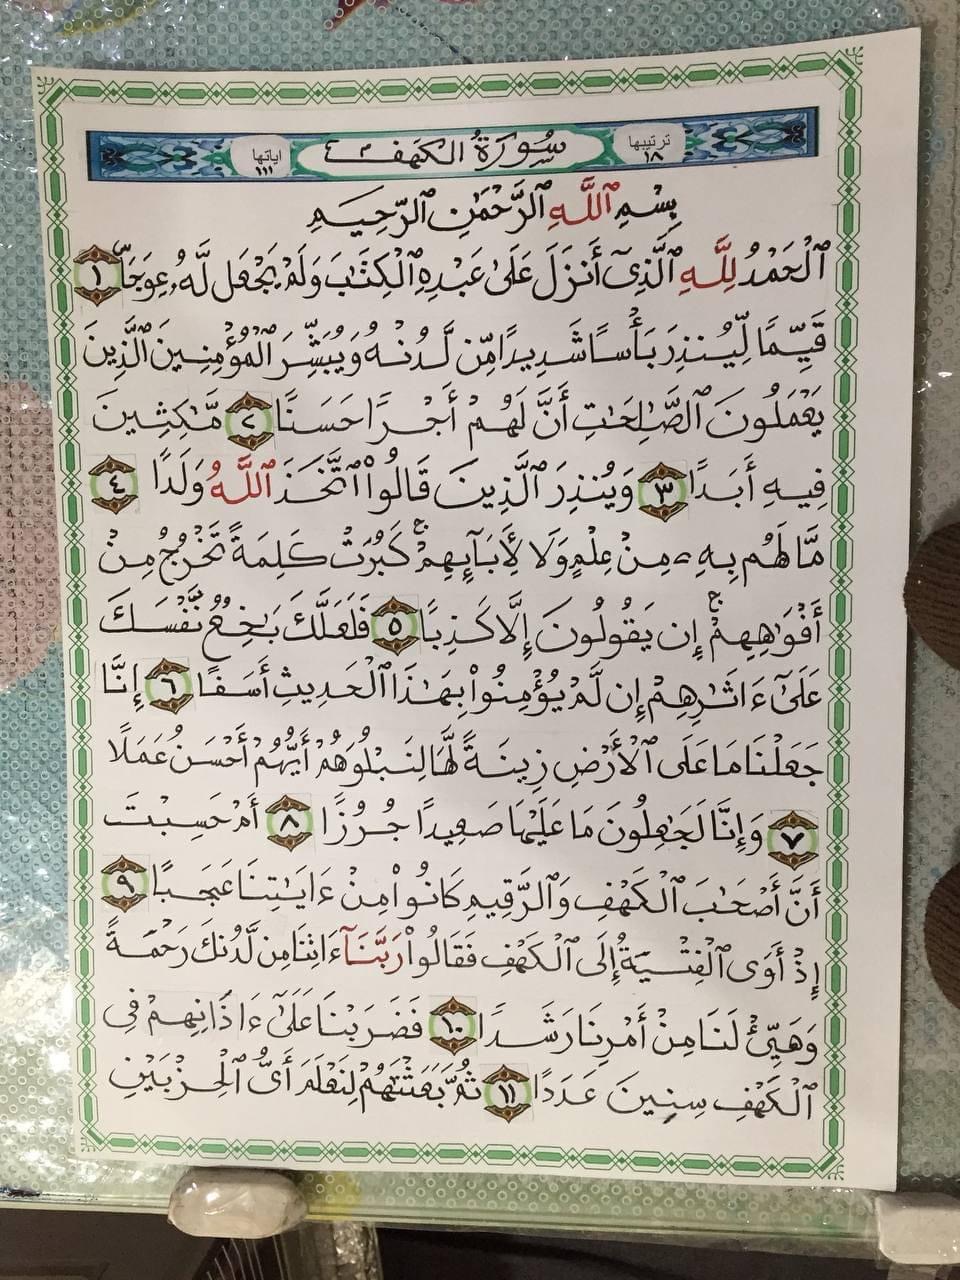 ترتيبها ١٨ سُورَةُ الكهف اياتها ١١١
بِسْمِ ٱللَّهِ ٱلرَّحْمَٰنِ ٱلرَّحِيمِ
ٱلْحَمْدُ لِلَّهِ ٱلَّذِىٓ أَنزَلَ عَلَىٰ عَبْدِهِ ٱلْكِتَٰبَ وَلَمْ يَجْعَل لَّهُۥ عِوَجَاۜ ١
قَيِّمًا لِّيُنذِرَ بَأْسًا شَدِيدًا مِّن لَّدُنْهُ وَيُبَشِّرَ ٱلْمُؤْمِنِينَ ٱلَّذِينَ
يَعْمَلُونَ ٱلصَّٰلِحَٰتِ أَنَّ لَهُمْ أَجْرًا حَسَنًا ٢ مَّٰكِثِينَ
فِيهِ أَبَدًا ٣ وَيُنذِرَ ٱلَّذِينَ قَالُوا۟ ٱتَّخَذَ ٱللَّهُ وَلَدًا ٤
مَّا لَهُم بِهِۦ مِنْ عِلْمٍ وَلَا لِأَبَآئِهِمْ ۚ كَبُرَتْ كَلِمَةً تَخْرُجُ مِنْ
أَفْوَٰهِهِمْ ۚ إِن يَقُولُونَ إِلَّا كَذِبًا ٥ فَلَعَلَّكَ بَٰخِعٌ نَّفْسَكَ
عَلَىٰٓ ءَاثَٰرِهِمْ إِن لَّمْ يُؤْمِنُوا۟ بِهَٰذَا ٱلْحَدِيثِ أَسَفًا ٦ إِنَّا
جَعَلْنَا مَا عَلَى ٱلْأَرْضِ زِينَةً لَّهَا لِنَبْلُوَهُمْ أَيُّهُمْ أَحْسَنُ عَمَلًا
٧ وَإِنَّا لَجَٰعِلُونَ مَا عَلَيْهَا صَعِيدًا جُرُزًا ٨ أَمْ حَسِبْتَ
أَنَّ أَصْحَٰبَ ٱلْكَهْفِ وَٱلرَّقِيمِ كَانُوا۟ مِنْ ءَايَٰتِنَا عَجَبًا ٩
إِذْ أَوَى ٱلْفِتْيَةُ إِلَى ٱلْكَهْفِ فَقَالُوا۟ رَبَّنَآ ءَاتِنَا مِن لَّدُنكَ رَحْمَةً
وَهَيِّئْ لَنَا مِنْ أَمْرِنَا رَشَدًا ١٠ فَضَرَبْنَا عَلَىٰٓ ءَاذَانِهِمْ فِى
ٱلْكَهْفِ سِنِينَ عَدَدًا ١١ ثُمَّ بَعَثْنَٰهُمْ لِنَعْلَمَ أَىُّ ٱلْحِزْبَيْنِ